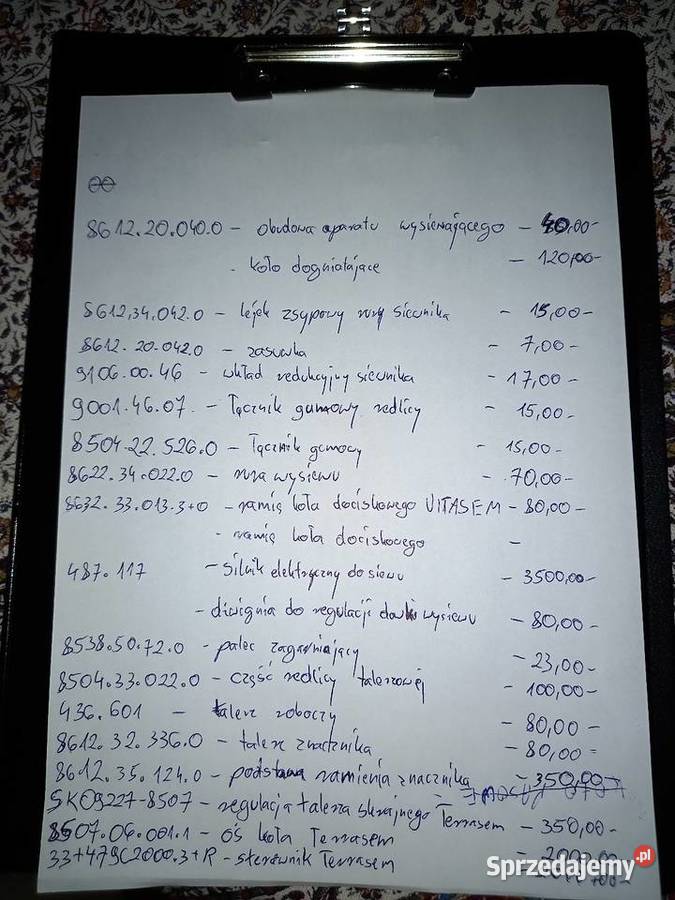 8612.20.040.0 - obudowa aparatu wysiewającego - 40,00-
- koło dogniatające - 120,00-
8612,34,042.0 - lejek zsypowy rury siewnika - 15,00-
8612.20.042.0 - zasuwka - 7,00-
9106.00.46 - wkład redukcyjny siewnika - 17,00-
9001.46.07. - łącznik gumowy redlicy - 15,00-
8504.22.526.0 - łącznik gumowy - 15,00-
8622.34.022.0 - rura wysiewu - 70,00-
8632.33.013.3+0 - ramię koła dociskowego VITASEM - 80,00-
- ramię koła dociskowego -
487.117 - silnik elektryczny do siewu - 3500,00-
- dźwignia do regulacji dawki wysiewu - 80,00-
8538.50.72.0 - palec zagarniający - 23,00-
8504.33.022.0 - część redlicy talerzowej - 100,00-
436.601 - talerz roboczy - 80,00-
8612.32.336.0 - talerz znacznika - 80,00=
8612.35.124.0 - podstawa ramienia znacznika - 350,00-
SK09227-8507 - regulacja talerza skrajnego Terrasem - 350,00-
8507.06.001.1 - oś koła Terrasem
33+479C2000.3+R - sterownik Terrasem
Sprzedajemy.pl